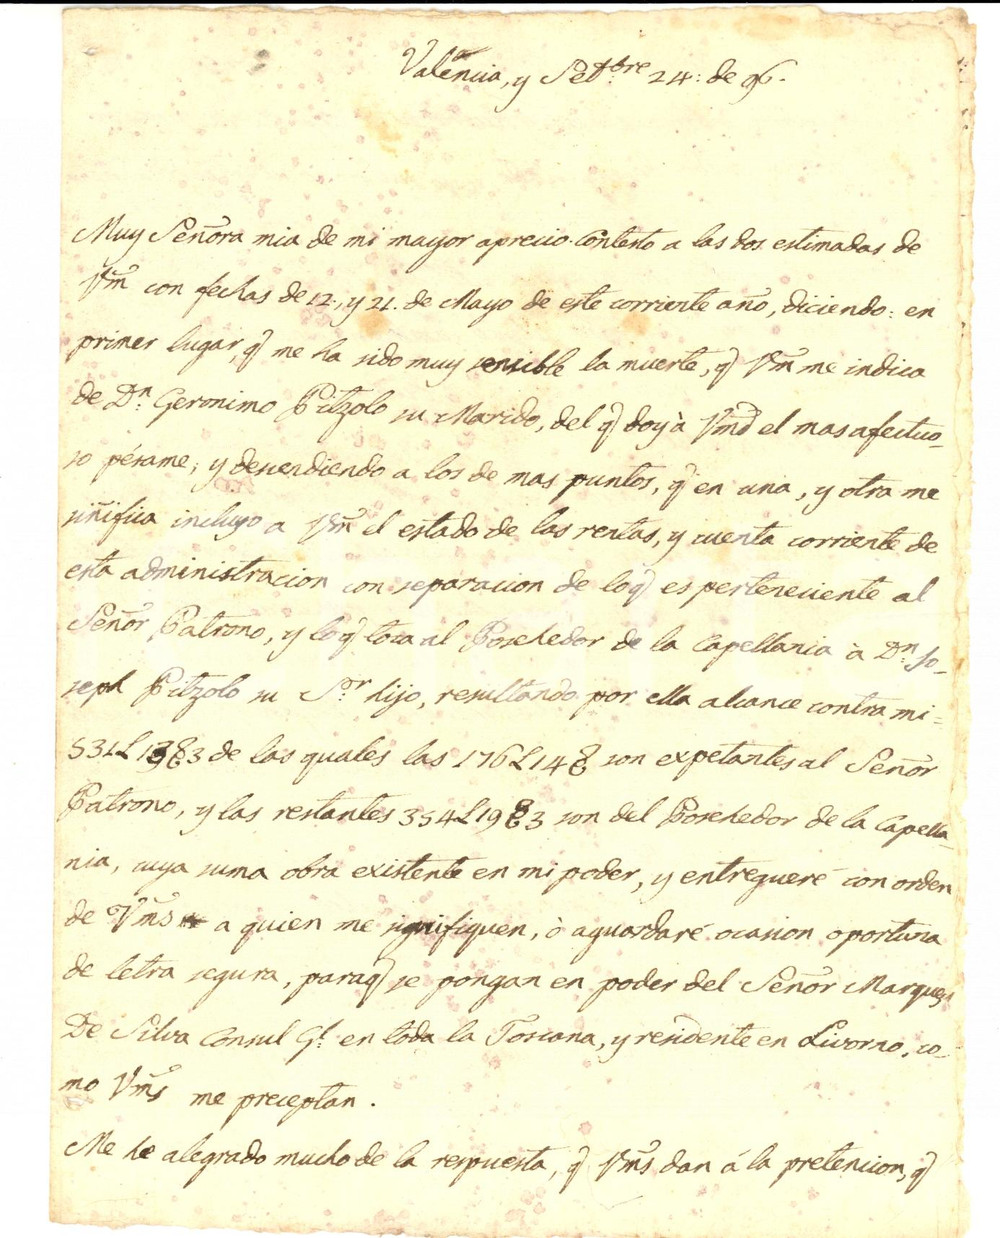 Valencia, y Setbre 24: de 96.
Muy Señora mia de mi mayor aprecio. Contesto a las dos estimadas de
Vm con fechas de 12., y 21. de Mayo de este corriente año, diciendo: en
primer lugar, q me ha sido muy sensible la muerte, q Vm me indica
de Dn. Geronimo Pitzolo su Marido, del q doy à Vmd el mas afectuo-
so pésame; y descendiendo a los de mas puntos, q en una, y otra me
siñifica incluyo a Vm el estado de las rentas, y cuenta corriente de
esta administracion con separacion de loq es perteneciente al
Señor Patrono, y loq toca al Posehedor de la Capellania à Dn. Jo-
seph Pitzolo su Sr hijo, resultando por ella alcance contra mi=
531L1383 de las quales las 176L148 son expetantes al Señor
Patrono, y las restantes 354L1983 son del Posehedor de la Capella-
nia, cuya suma obra existente en mi poder, y entregueré con orden
de Vms a quien me signifiquen, ò aguardaré ocasion oportuna
de letra segura, paraq se pongan en poder del Señor Marques
De Silva Consul Gl. en toda la Toscana, y residente en Livorno, co-
mo Vms me preceptan.
Me he alegrado mucho de la respuesta, q Vms dan á la pretencion, q